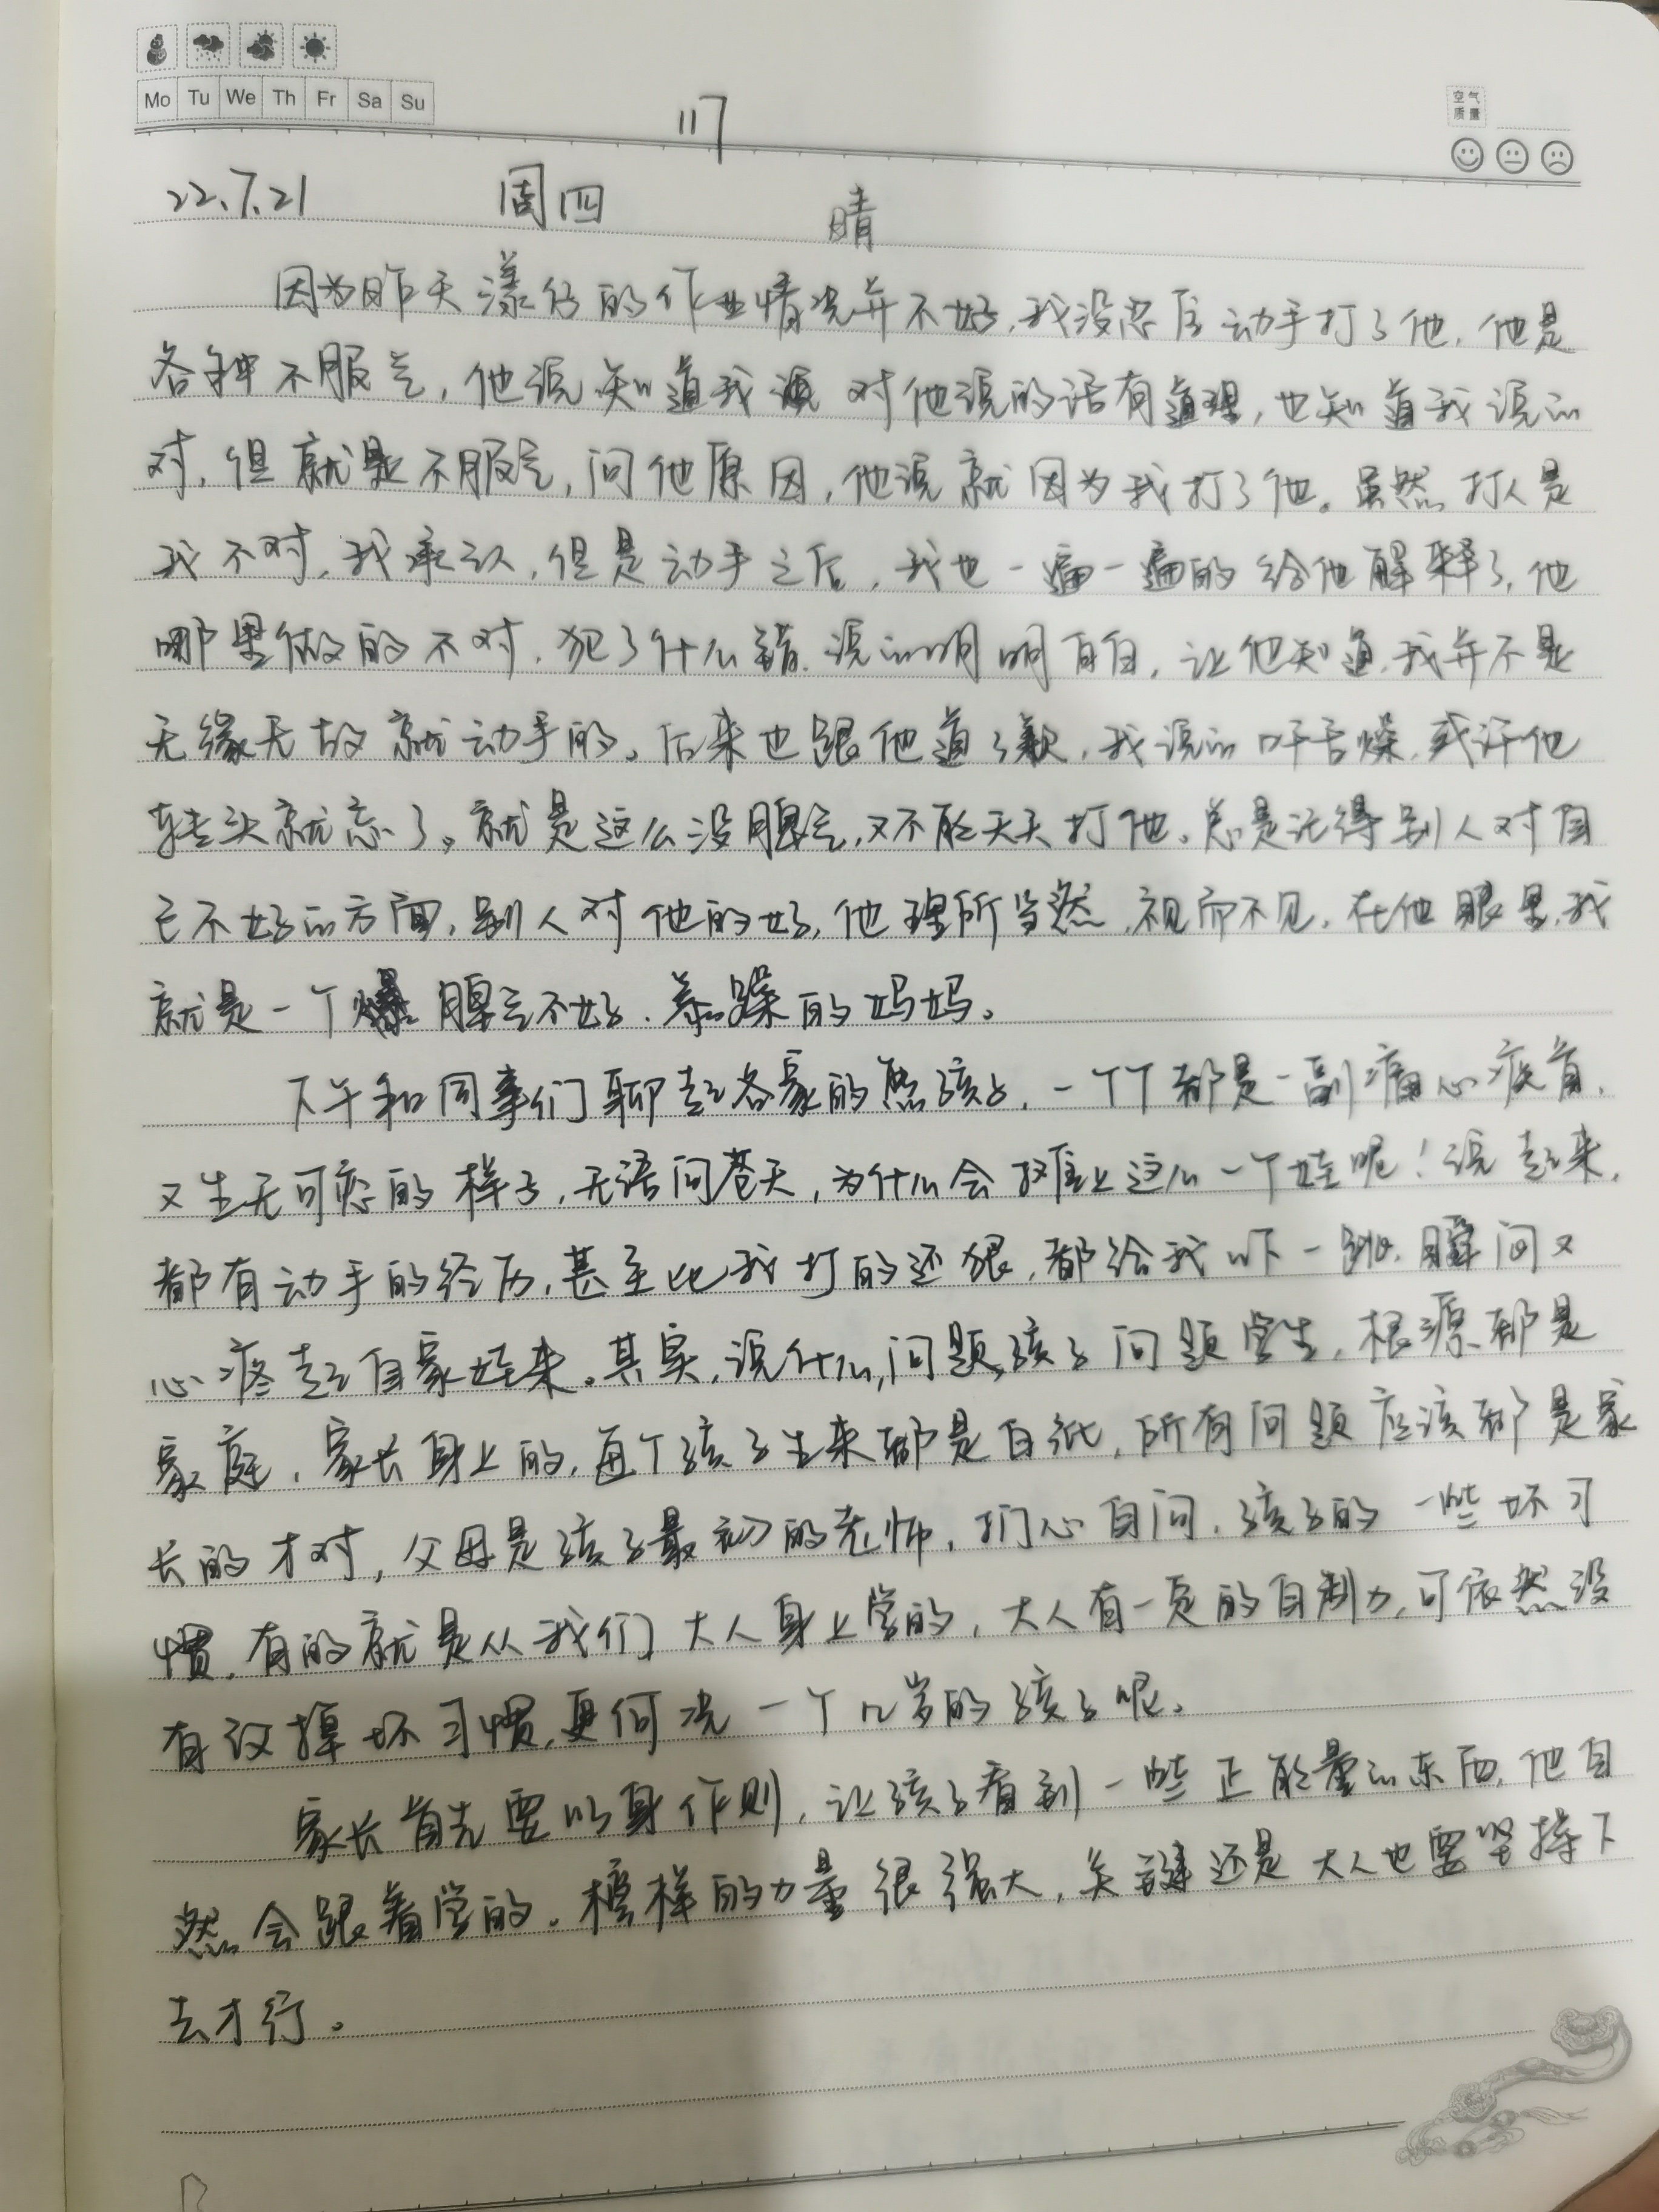 Mo Tu We Th Fr Sa Su
空气
质量
117
22.7.21 周四 晴
因为昨天漾仔的作业情况并不好,我没忍住动手打了他,他是
各种不服气,他说知道我 对他说的话有道理,也知道我说的
对,但就是不服气,问他原因,他说就因为我打了他。虽然打人是
我不对,我承认,但是动手之后,我也一遍一遍的给他解释了,他
哪里做的不对,犯了什么错,说的明明白白,让他知道,我并不是
无缘无故就动手的。后来也跟他道了歉,我说的口干舌燥,或许他
转头就忘了。就是这么没脾气,又不能天天打他。总是记得别人对自
己不好的方面,别人对他的好,他理所当然,视而不见,在他眼里,我
就是一个 脾气不好、暴躁的妈妈。
下午和同事们聊起各家的熊孩子,一个个都是一副痛心疾首,
又生无可恋的样子,无语问苍天,为什么会摊上这么一个娃呢!说起来,
都有动手的经历,甚至比我打的还狠,都给我吓一跳,瞬间又
心疼起自家娃来。其实,说什么,问题孩子问题学生,根源都是
家庭,家长身上的,每个孩子生来都是白纸,所有问题应该都是家
长的才对,父母是孩子最初的老师,扪心自问,孩子的一些坏习
惯,有的就是从我们大人身上学的,大人有一定的自制力,可依然没
有改掉坏习惯,更何况一个几岁的孩子呢。
家长首先要以身作则,让孩子看到一些正能量的东西,他自
然会跟着学的。榜样的力量很强大,关键还是大人也要坚持下
去才行。